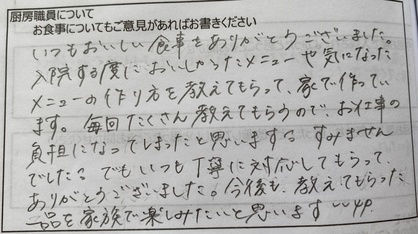 厨房職員について
お食事についてもご意見があればお書きください
いつもおいしい食事をありがとうございました。
入院する度においしかったメニューや気になった
メニューの作り方を教えてもらって、家で作ってい
ます。毎回たくさん教えてもらうので、お仕事の
負担になってしまったと思います。すみません
でした。でもいつも丁寧に対応してもらって、
ありがとうございました。今後も、教えてもらった
一品を家族で楽しみたいと思います